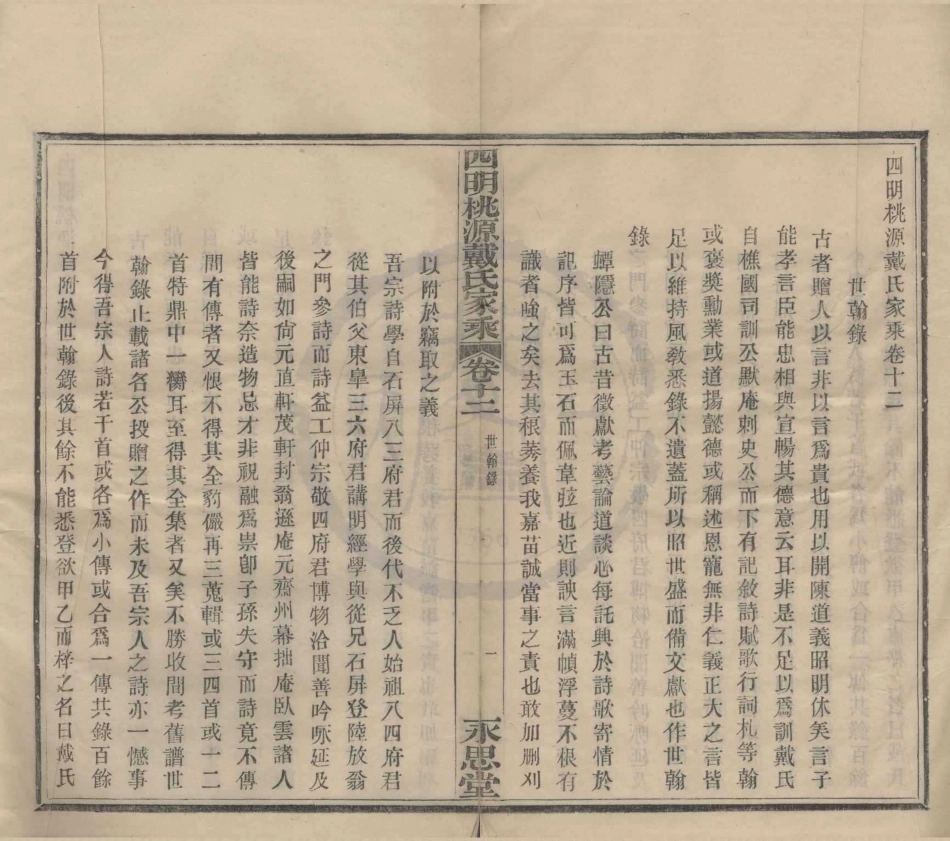 四明桃源戴氏家乘卷十二
世翰錄
古者贈人以言非以言爲貴也用以開陳道義昭明休美言子
能孝言臣能忠相與宣暢其德意云耳非是不足以爲訓戴氏
自樵國司訓公默庵刺史公而下有記敘詩賦歌行詞札等翰
或褒獎勳業或道揚懿德或稱述恩寵無非仁義正大之言皆
足以維持風敎悉錄不遺蓋所以昭世盛而備文獻也作世翰
錄
蟫隱公曰古昔徵獻考藝論道談心每託興於詩歌寄情於
記序皆可爲玉石而佩韋弦也近則諛言滿幀浮蔓不根有
識者嗤之矣去其稂莠養我嘉苗誠當事之責也敢加刪刈
四明桃源戴氏家乘
卷十二
世翰錄
一
永思堂
以附於竊取之義
吾宗詩學自石屏八三府君而後代不乏人始祖八四府君
從其伯父東臯三六府君講明經學與從兄石屏登陸放翁
之門參詩而詩益工仲宗敬四府君博物洽聞善吟咏延及
後嗣如尙元直軒茂軒封翁遜庵元齋州幕拙庵臥雲諸人
皆能詩奈造物忌才非祝融爲祟卽子孫失守而詩竟不傳
間有傳者又恨不得其全豹儼再三蒐輯或三四首或十二
首特鼎中一臠耳至得其全集者又美不勝收間考舊譜世
翰錄止載諸名公投贈之作而未及吾宗人之詩亦一憾事
今得吾宗人詩若干首或各爲小傳或合爲一傳共錄百餘
首附於世翰錄後其餘不能悉登欲甲乙而梓之名曰戴氏